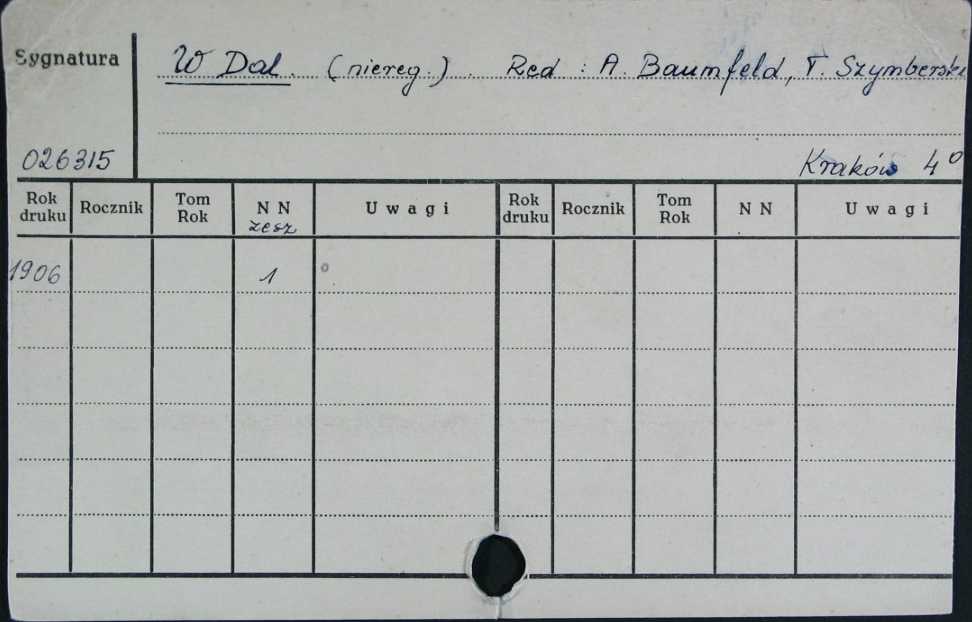 Sygnatura
W Dal. (niereg.). Red : A. Baumfeld, T. Szymberski
026315
Kraków 4°
Rok druku Rocznik Tom Rok N N zesz U w a g i Rok druku Rocznik Tom Rok N N U w a g i
1906 1